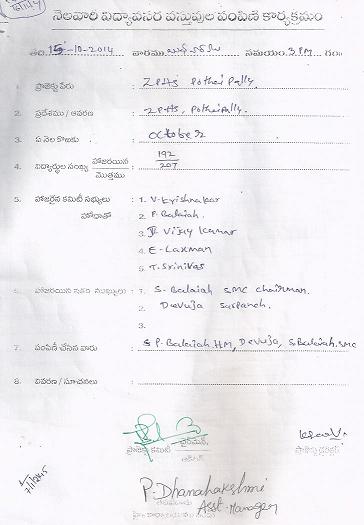 నెలవారి విద్యావసర వస్తువుల పంపిణీ కార్యక్రమం
తేది: 15-10-2014 వారము సమయం: 3 PM గం॥
1. ప్రాజెక్టు పేరు : ZPHS Pothaipally.
2. ప్రదేశము / ఆవరణ : ZPHS, Pothaipally.
3. ఏ నెల కొఱకు : October
4. విద్యార్థుల సంఖ్య హాజరయిన / మొత్తము : 192 / 207
5. హాజరైన కమిటీ సభ్యులు హోదాతో : 1. V. Krishnakar
2. P. Balaiah.
3. Vijay Kumar
4. E-Laxman
5. T. Srinivas
6. హాజరయిన ఇతర ముఖ్యులు : 1. S- Balaiah SMC Chairman.
2. Devuja Sarpanch.
3.
7. పంపిణీ చేసిన వారు : P. Balaiah HM, Devuja, S. Balaiah. SMC
8. వివరణ / సూచనలు :
ప్రాజెక్టు కమిటీ చైర్మన్,
P. Dhanalakshmi
Asst. Manager